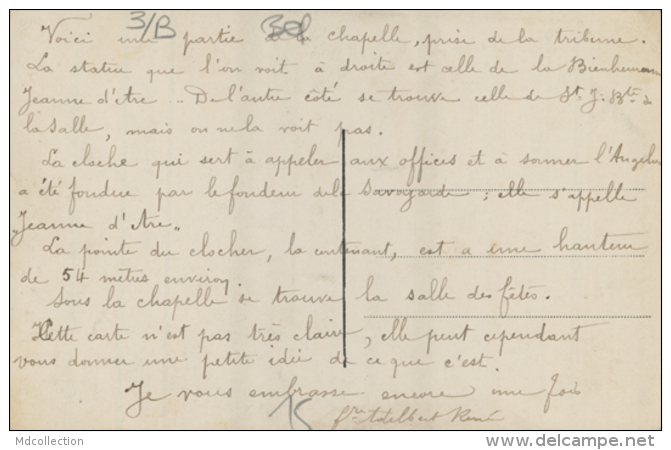 3/B 30
Voici une partie de la chapelle, prise de la tribune.
La statue que l'on voit à droite est celle de la Bienheureuse
Jeanne d'Arc .. De l'autre côté se trouve celle de St. J. Bte de
la Salle, mais on ne la voit pas.
La cloche qui sert à appeler aux offices et à sonner l'Angelus
a été fondue par le fondeur de la Savoyarde ; elle s'appelle
"Jeanne d'Arc"
La pointe du clocher, la contenant, est a une hauteur
de 54 mètres environ.
Sous la chapelle se trouve la salle des fêtes.
Cette carte n'est pas très claire, elle peut cependant
vous donner une petite idée de ce que c'est.
Je vous embrasse encore une fois
fre Adelbert René
Mdcollection
delcampe.net